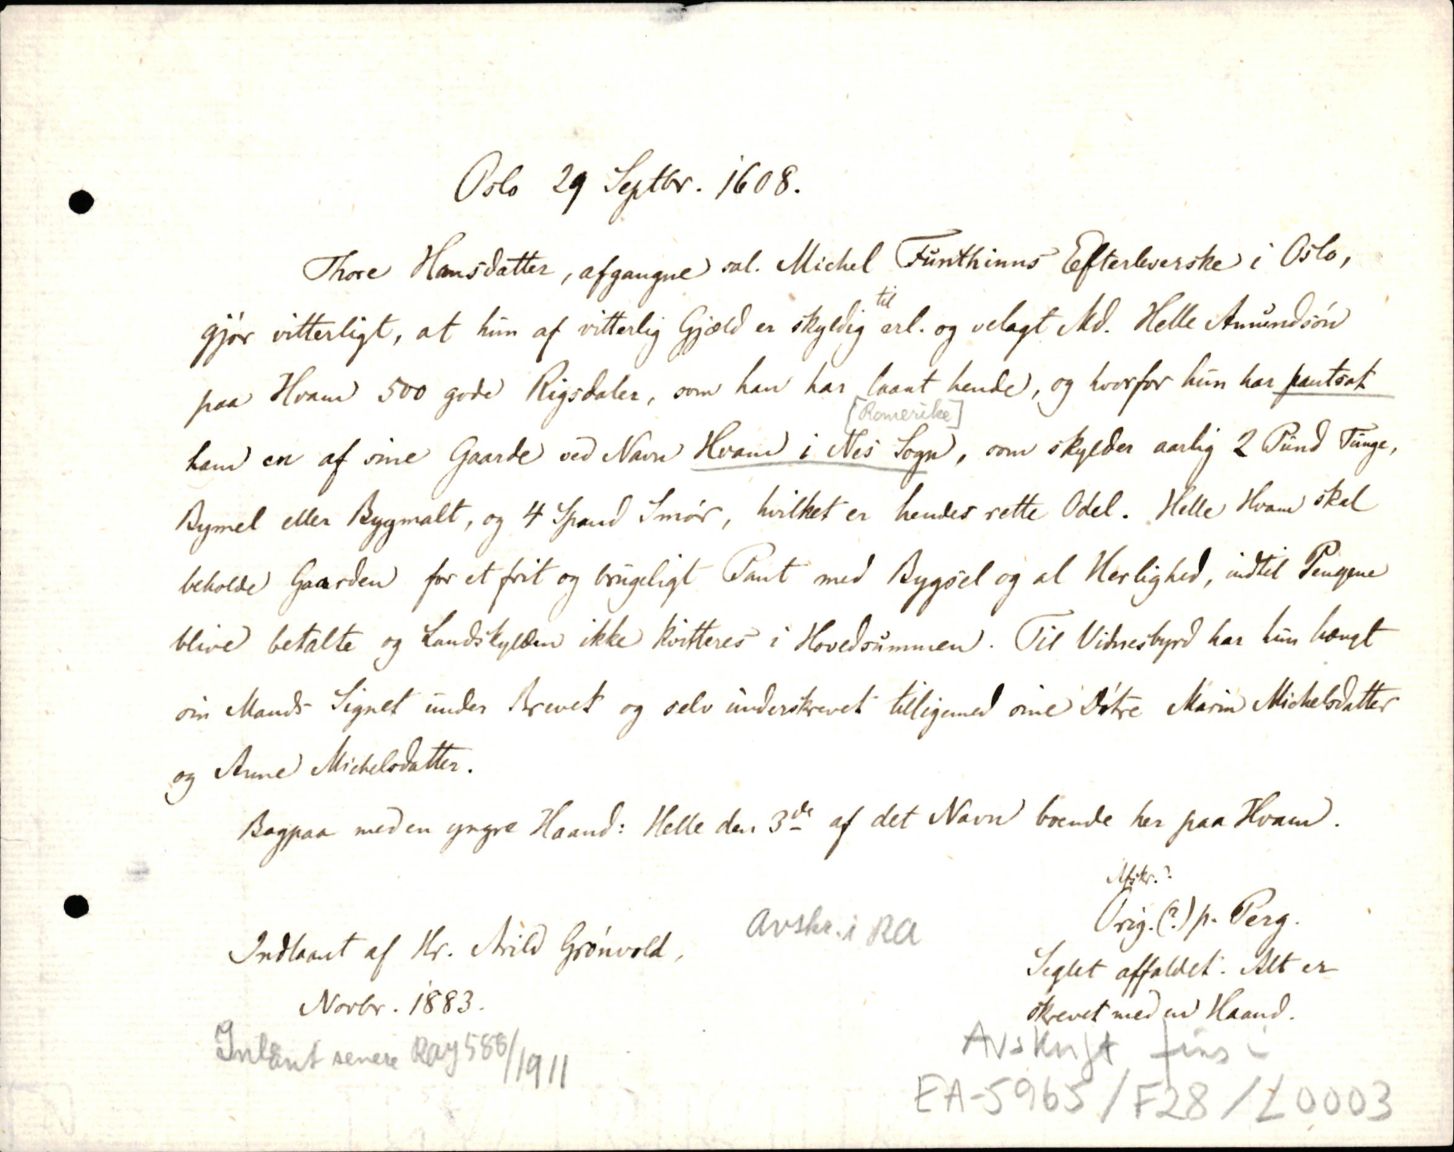 Oslo 29 Septbr. 1608.
Thore Hansdatter, afgangne sal. Michel Funthinns Efterleverske i Oslo,
gjör vitterligt, at hun af vitterlig Gjæld er skyldig til erl. og velagt Md. Helle Amundsön
paa Hvam 500 gode Rigsdaler, som han har laant hende, og hvorfor hun har pantsat
[Romerike]
ham en af sine Gaarde ved Navn Hvam i Nes Sogn, som skylder aarlig 2 Pund Tunge,
Bymel eller Bygmalt, og 4 Spand Smör, hvilket er hendes rette Odel. Helle Hvam skal
beholde Gaarden for et frit og brugeligt Pant med Bygsel og al Herlighed, indtil Pengene
blive betalte og Landskylden ikke kvitteres i Hovedsummen. Til Vidnesbyrd har hun hængt
sin Mands Signet under Brevet og selv underskrevet tilligemed sine Döttre Marin Michelsdatter
og Anne Michelsdatter.
Bagpaa med en yngre Haand: Helle den 3de af det Navn boende her paa Hvam.
Afskr.?
Orig. (?) p. Perg.
Seglet affaldet. Alt er
skrevet med en Haand.
Avskr. i RA
Indlaant af Hr. Arild Grönvold,
Novbr. 1883.
Inlånt senere RAJ 588/1911
Avskrift fins i
EA-5965/F28/L0003